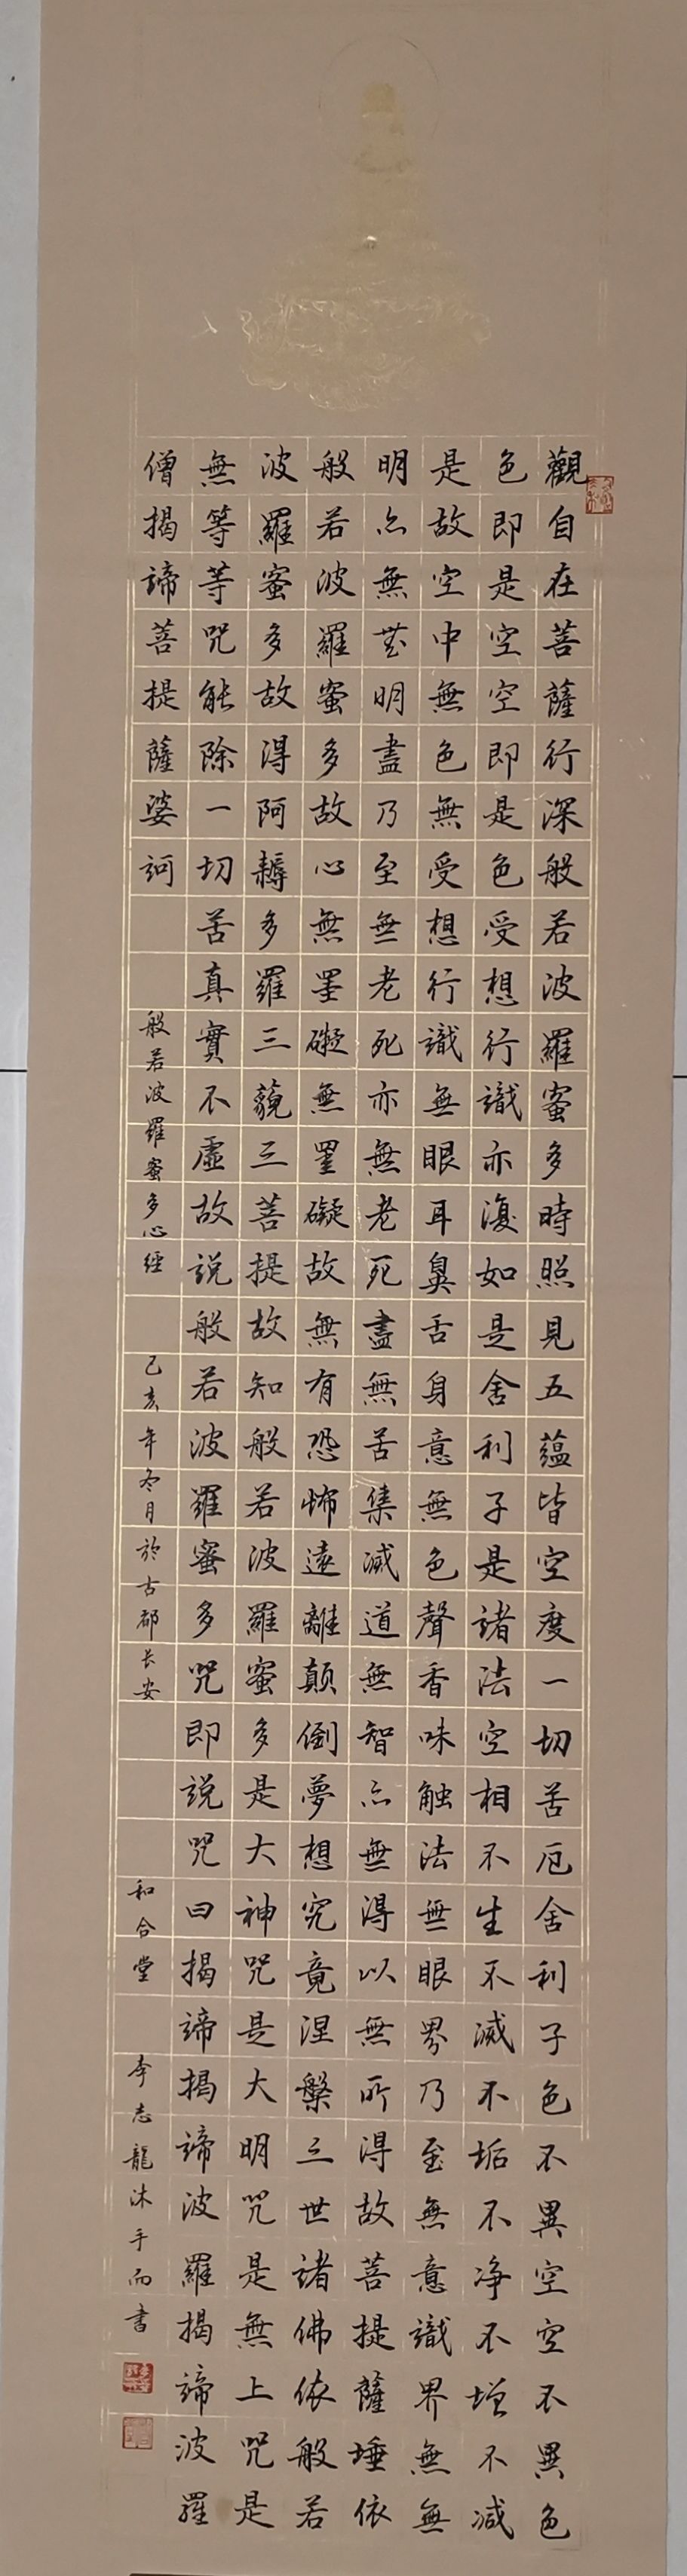 觀自在菩薩行深般若波羅蜜多時照見五蘊皆空度一切苦厄舍利子色不異空空不異色
色即是空空即是色受想行識亦復如是舍利子是諸法空相不生不滅不垢不净不增不减
是故空中無色無受想行識無眼耳鼻舌身意無色聲香味触法無眼界乃至無意識界無無
明亦無無明盡乃至無老死亦無老死盡無苦集滅道無智亦無得以無所得故菩提薩埵依
般若波羅蜜多故心無罣礙無罣礙故無有恐怖遠離顛倒夢想究竟涅槃三世諸佛依般若
波羅蜜多故得阿耨多羅三藐三菩提故知般若波羅蜜多是大神咒是大明咒是無上咒是
無等等咒能除一切苦真實不虛故說般若波羅蜜多咒即說咒曰揭諦揭諦波羅揭諦波羅
僧揭諦菩提薩婆訶
般若波羅蜜多心經
己亥年冬月於古都长安
和合堂
李志龍沐手而書